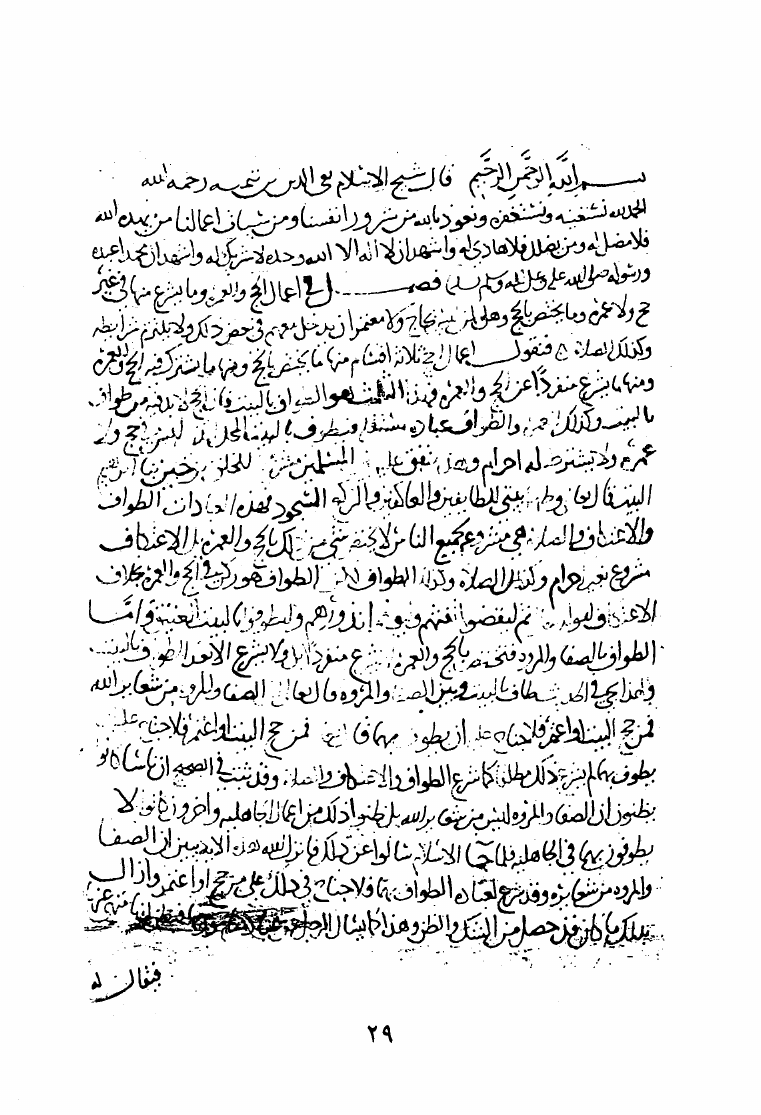 بسم الله الرحمن الرحيم قال شيخ الاسلام تقي الدين بن تيميه رحمه الله
الحمد لله نستعينه ونستغفره ونعوذ بالله من شرور انفسنا ومن سيئات اعمالنا من يهده الله
فلا مضل له ومن يضلل فلا هادي له واشهد ان لا اله الا الله وحده لا شريك له واشهد ان محمدا عبده
ورسوله صلى الله عليه وعلى اله وسلم تسليما فصل في اعمال الحج والعمره وما يشرع منها في غير
حج ولا عمره وما يختص بالحج وهل لمن ليس بحاج ولا معتمر ان يدخل معهم في بعض ذلك ولا يلتزم شرائطه
وكذلك الصلاه فنقول اعمال الحج ثلاثة اقسام منها ما يختص بالحج ومنها ما يشترك فيه الحج والعمره
ومنها ما يشرع منفردا عن الحج والعمره وهذا الثالث هو الطواف بالبيت فان الحج لا بد فيه من طواف
بالبيت وكذلك العمره والطواف عباده مستقله فيطوف بالبيت الحلال الذي ليس في حج ولا
عمره ولا يشترط له احرام وهذا متفق عليه المسلمين
البيت قال تعالى وطهر بيتي للطايفين والعاكفين والركع السجود فهذه العبادات الطواف
والاعتكاف والصلاه هي مشروعه لجميع الناس لا يختص شي من ذلك بالحج والعمره بل الاعتكاف
مشروع بغير احرام وكذلك الصلاه وكذلك الطواف لكن الطواف هو ركن في الحج والعمره بخلاف
الاعتكاف ولقوله ثم ليقضوا تفثهم وليوفوا نذورهم وليطوفوا بالبيت العتيق واما
الطواف بالصفا والمروه فمختص بالحج والعمره لا يشرع منفردا ولا يشرع الا بعد الطواف بالبيت
والمروه قال تعالى ان الصفا والمروه من شعاير الله
فمن حج البيت او اعتمر فلا جناح عليه ان يطوف بهما فمن حج البيت او اعتمر فلا جناح عليه
يطوف بهما لم يشرع ذلك مطلقا كما شرع الطواف والاعتكاف والصلاه وقد ثبت في الصحيح ان ناسا كانوا
يظنون ان الصفا والمروه ليس من شعاير الله بل ظنوا ذلك من اعمال الجاهليه واخرون كانوا لا
يطوفون بهما في الجاهليه فلما جا الاسلام سالوا عن ذلك فانزل الله هذه الايه يبين ان الصفا
والمروه من شعايره وقد شرع لعباده الطواف بهما فلا جناح في ذلك على من حج او اعتمر وازال
بذلك ما كان قد حصل من الشك والظن وهذا كما يسال الرجل
فيقال له
٢٩